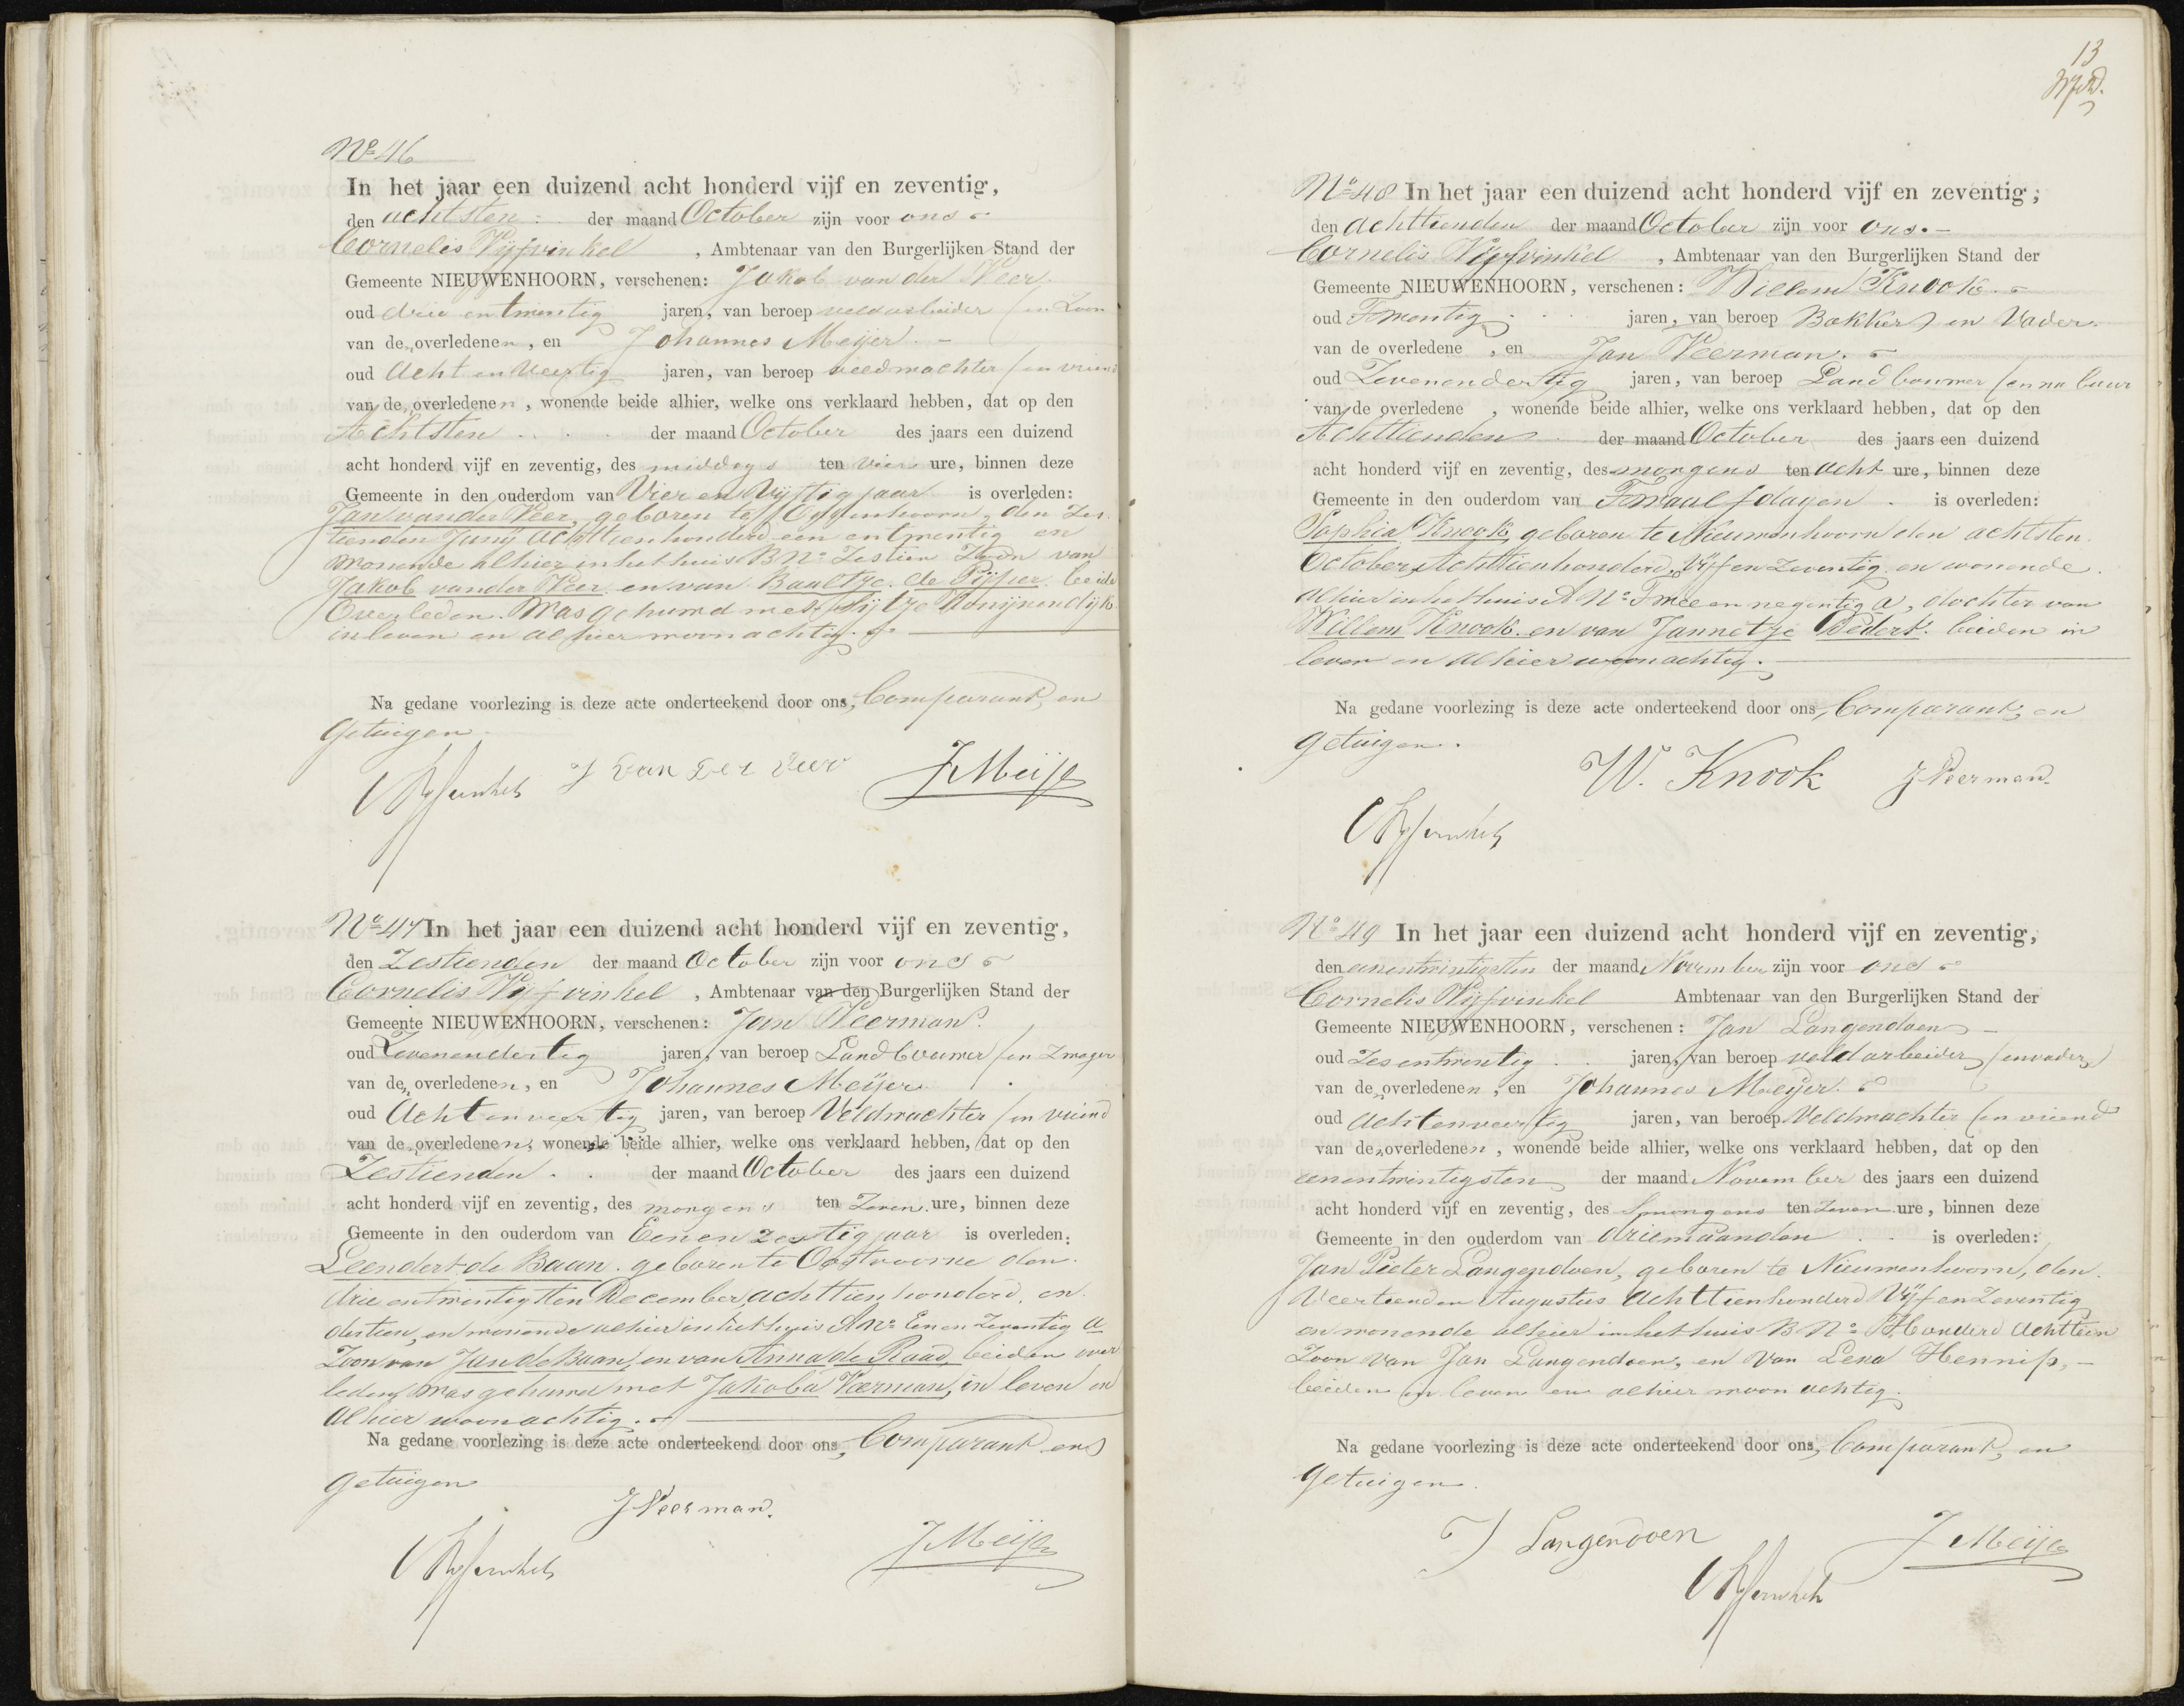 No 46
In het jaar een duizend acht honderd vijf en zeventig,
den achtsten der maand October zijn voor ons
Cornelis Vijfvinkel , Ambtenaar van den Burgerlijken Stand der
Gemeente NIEUWENHOORN, verschenen: Jakob van der Veer
oud drie en twintig jaren, van beroep veldarbeider (en Zoon
van de overledenen, en Johannes Meijer.
oud Acht en Veertig jaren, van beroep veldwachter (en vriend
van de overledenen, wonende beide alhier, welke ons verklaard hebben, dat op den
Achtsten der maand October des jaars een duizend
acht honderd vijf en zeventig, des middags ten vier ure, binnen deze
Gemeente in den ouderdom van Vier en Vijftig jaar is overleden:
Jan van der Veer, geboren te den Zes
tienden Junij achttienhonderd een en twintig en
wonende alhier in het huis B No Zestien Zoon van
Jakob van der Veer en van Baaltje de Pijper beide
Overleden. Was gehuwd met Sijtje Konijnendijk
in leven en alhier woonachtig.
Na gedane voorlezing is deze acte onderteekend door ons, Comparant, en
Getuigen
CVijfvinkel J van der Veer JMeijer
No 47 In het jaar een duizend acht honderd vijf en zeventig,
den Zestienden der maand October zijn voor ons
Cornelis Vijfvinkel , Ambtenaar van den Burgerlijken Stand der
Gemeente NIEUWENHOORN, verschenen: Jan Veerman.
oud Zevenendertig jaren, van beroep Landbouwer (en Zwager
van de overledenen, en Johannes Meijer
oud Acht en veertig jaren, van beroep Veldwachter (en vriend
van de overledenen, wonende beide alhier, welke ons verklaard hebben, dat op den
Zestienden der maand October des jaars een duizend
acht honderd vijf en zeventig, des morgens ten Zeven ure, binnen deze
Gemeente in den ouderdom van Een en zestig jaar is overleden:
Leendert de Baan. geboren te Oostvoorne den
drie en twintigsten December, achttienhonderd en
dertien, en wonende alhier in het huis A No Een en Zeventig a
Zoon van Jan de Baan, en van Anna de Raad, beiden over
leden was gehuwd met Jakoba Veerman, in leven en
alhier woonachtig.
Na gedane voorlezing is deze acte onderteekend door ons, Comparant en
getuigen
JVeerman.
CVijfvinkel JMeijer
13
No 48 In het jaar een duizend acht honderd vijf en zeventig;
den achttienden der maand October zijn voor ons.
Cornelis Vijfvinkel , Ambtenaar van den Burgerlijken Stand der
Gemeente NIEUWENHOORN, verschenen: Willem Knook.
oud Twentig jaren, van beroep Bakker) en Vader
van de overledene , en Jan Veerman.
oud Zevenendertig jaren, van beroep Landbouwer (en na buur
van de overledene , wonende beide alhier, welke ons verklaard hebben, dat op den
Achttienden der maand October des jaars een duizend
acht honderd vijf en zeventig, des morgens ten acht ure, binnen deze
Gemeente in den ouderdom van Twaalf dagen is overleden:
Sophia Knook, geboren te Nieuwenhoorn den achtsten
October, Achttienhonderd, Vijf en Zeventig en wonende
alhier in het huis A No Twee en negentig a, dochter van
Willem Knook en van Jannetje Bedert. beiden in
leven en alhier woonachtig.
Na gedane voorlezing is deze acte onderteekend door ons, Comparant, en
getuigen.
W. Knook JVeerman.
CVijfvinkel
No 49 In het jaar een duizend acht honderd vijf en zeventig,
den eenentwintigsten der maand November zijn voor ons
Cornelis Vijfvinkel Ambtenaar van den Burgerlijken Stand der
Gemeente NIEUWENHOORN, verschenen: Jan Langendoen
oud Zes entwintig jaren, van beroep veldarbeider, (en vader)
van de overledenen, en Johannes Meijer.
oud Acht en veertig jaren, van beroep Veldwachter (en vriend
van de overledenen, wonende beide alhier, welke ons verklaard hebben, dat op den
eenentwintigsten der maand November des jaars een duizend
acht honderd vijf en zeventig, des Smorgens ten Zeven ure, binnen deze
Gemeente in den ouderdom van driemaanden is overleden:
Jan Pieter Langendoen, geboren te Nieuwenhoorn, den
Veertienden Augustus Achttienhonderd Vijf en Zeventig
en wonende alhier in het huis B No Honderd Achttien
Zoon van Jan Langendoen, en van Lena Hennip,
beiden in leven en alhier woonachtig.
Na gedane voorlezing is deze acte onderteekend door ons, Comparant, en
Getuigen.
J Langendoen J Meije
CVijfvinkel